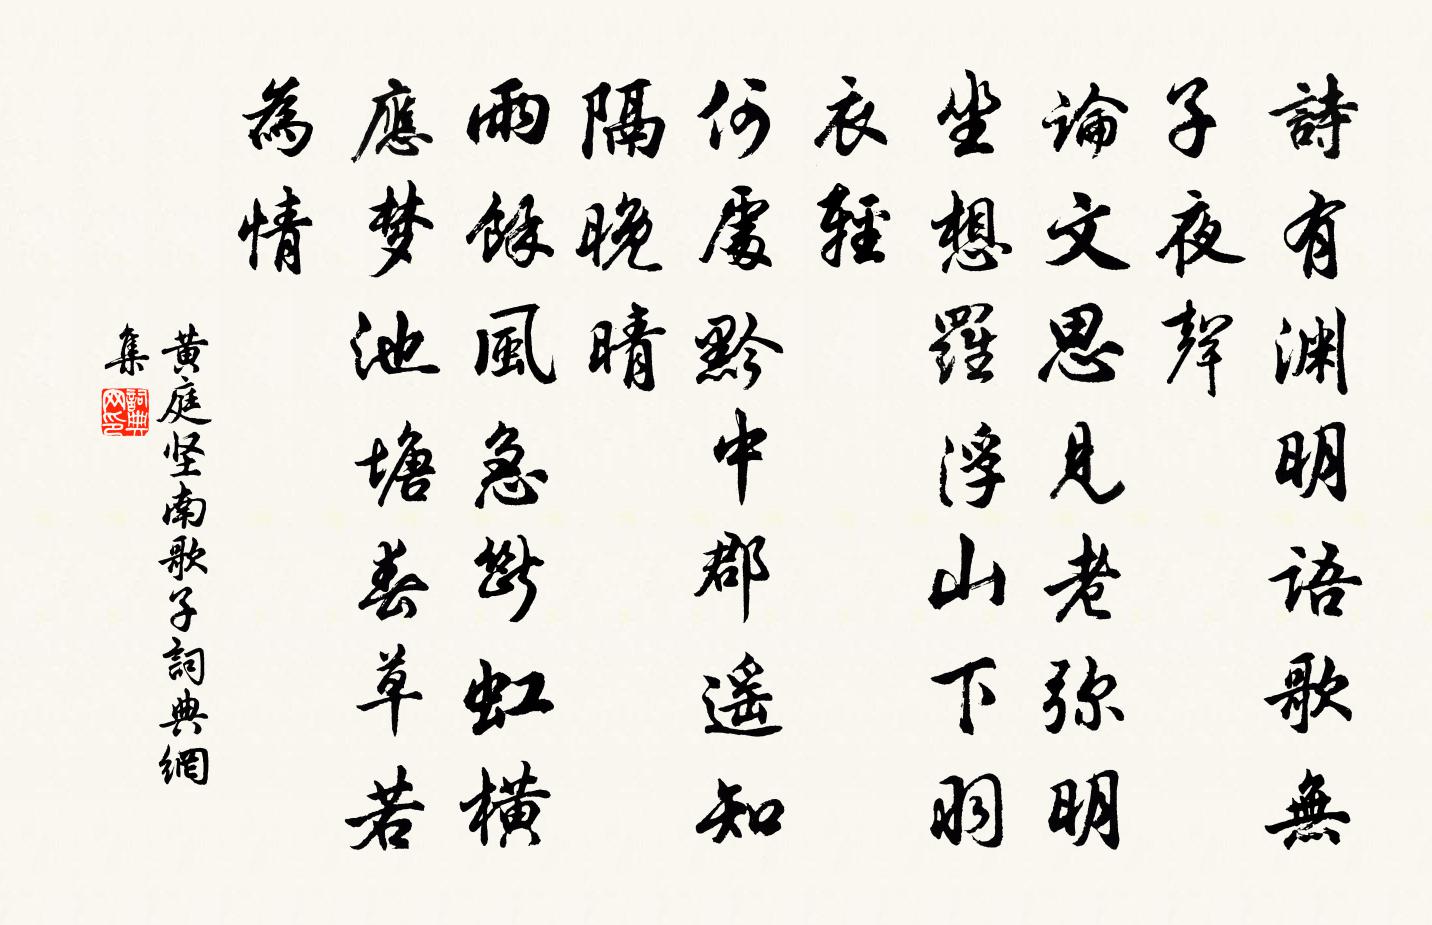 詩有渊明語歌無
子夜聲
论文思见老弥明
坐想羅浮山下羽
衣輕
何處黔中郡遥知
隔晚晴
雨餘風急斷虹橫
應梦池塘春草若
為情
黄庭坚南歌子詞典網
集
詞典网印